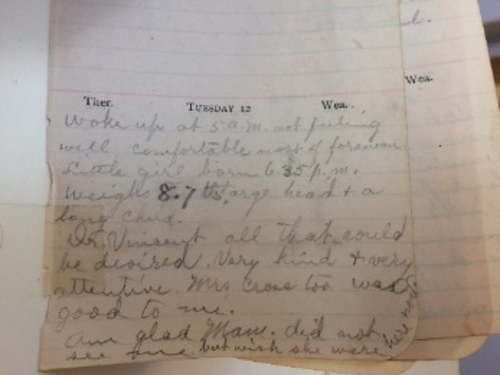 l.
Wea.
Ther. TUESDAY 12 Wea.
Woke up at 5 a.m. not feeling
well comfortable most of forenoon
Little girl born 6.35 p.m.
Weighs 8.7 lbs. large head & a
long child.
Dr. Vincent all that could
be desired. Very kind & very
attentive Mrs Cross too was
good to me.
am glad Mam. did not
see me but wish she were
here now